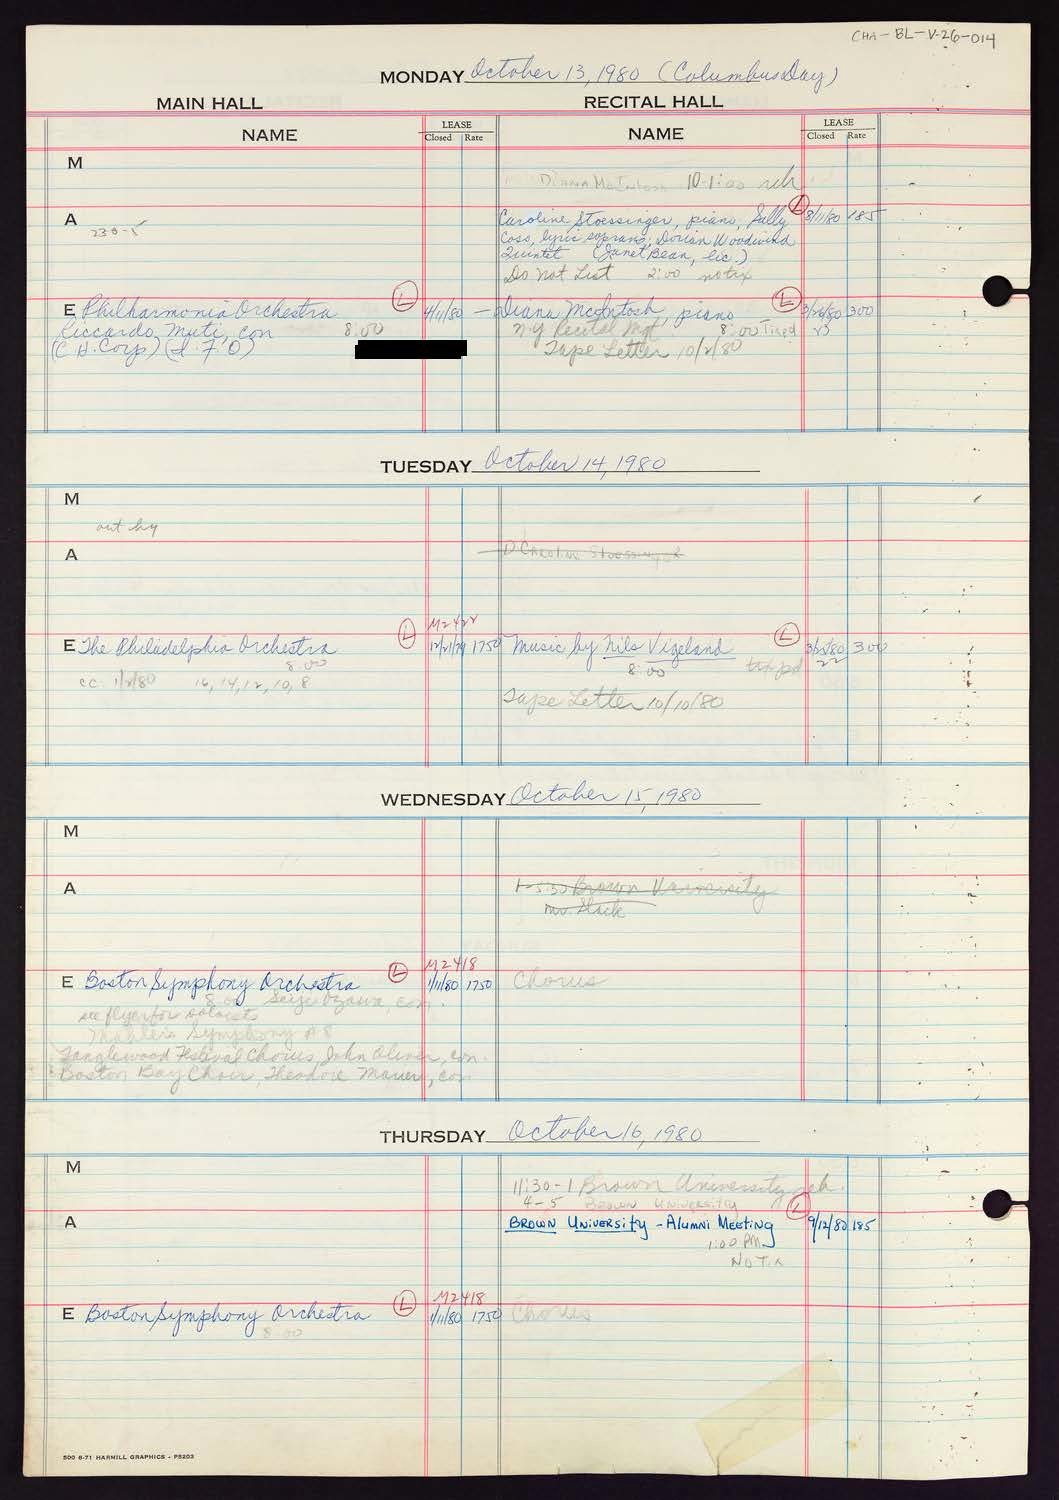 CHA-BL-V-26-014
MONDAY October 13, 1980 (Columbus Day)
MAIN HALL
RECITAL HALL
NAME
LEASE
Closed Rate
NAME
LEASE
Closed Rate
M
Diana McIntosh 10-1:00 reh
A
230-5
Caroline Stoessinger, piano, Sally L 8/11/80 185
Coss, lyric soprano; Dorian Woodwind
Quintet (Janet Bean, lic.)
Do Not List 2:00 notix
E Philharmonia Orchestra L 4/11/80
Riccardo Muti, con 8:00
(C.H. Corp) (I.F.O)
— Diana McIntosh, piano L 3/26/80 300
NY Recital Mgt 8:00
Tape Letter 10/2/80
TUESDAY October 14, 1980
M
out by
A
D Caroline Stoessinger
E The Philadelphia Orchestra L M2422 12/21/79 1750
8:00
cc. 1/2/80 16, 14, 12, 10, 8
Music by Nils Vigeland L 300
8:00 tix pd 22
Tape Letter 10/10/80
WEDNESDAY October 15, 1980
M
A
1-5:30 Brown University
mr. Slack
E Boston Symphony Orchestra L M2418 1/11/80 1750
8:00 Seiji Ozawa, con.
see flyer for soloists
Mahler's Symphony #8
Tanglewood Festival Chorus, John Oliver, con.
Boston Boy Choir, Theodore Marier, con
Chorus
THURSDAY October 16, 1980
M
11:30-1 Brown University reh.
4-5 Brown University
A
BROWN UNIVERSITY - ALUMNI MEETING L 9/12/80 185
1:00 PM
NOTIX
E Boston Symphony Orchestra L M2418 1/11/80 1750
8:00
Chorus
500 6-71 HARMILL GRAPHICS - P5203